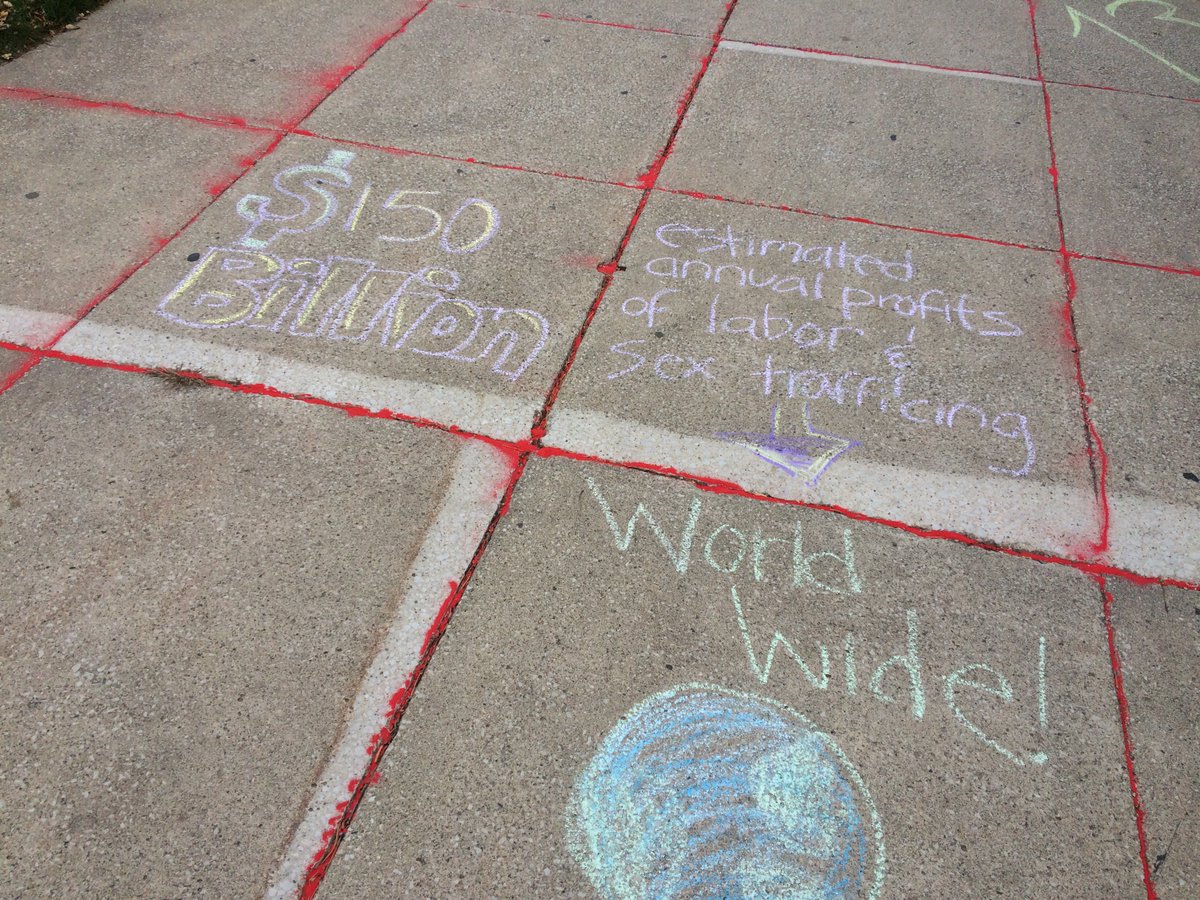 $150
Billion
estimated
annual profits
of labor &
sex trafficing
World
Wide!